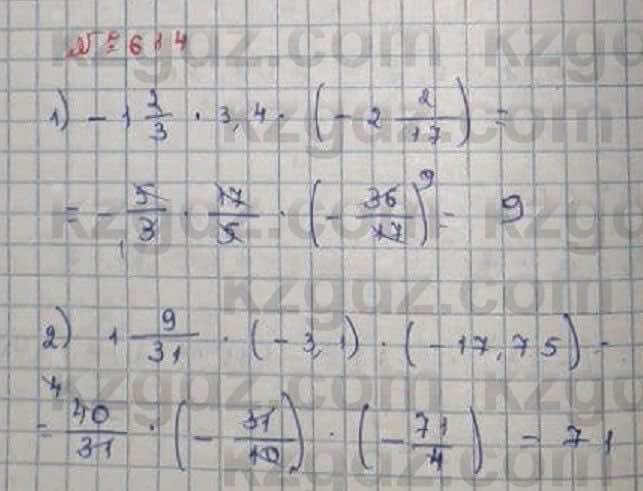 № 614
1) - 1 2/3 · 3,4 · (- 2 2/17) =
= - 5/3 · 17/5 · (- 36/17) 9 = 9
2) 1 9/31 · (- 3,1) · (- 17,75) =
4
= 40/31 · (- 31/10) · (- 71/4) = 71
kzgdz.com kzgdz.com
kzgdz.com
kzgdz.com
kzgdz.com
kzgdz.com
kzgdz.com